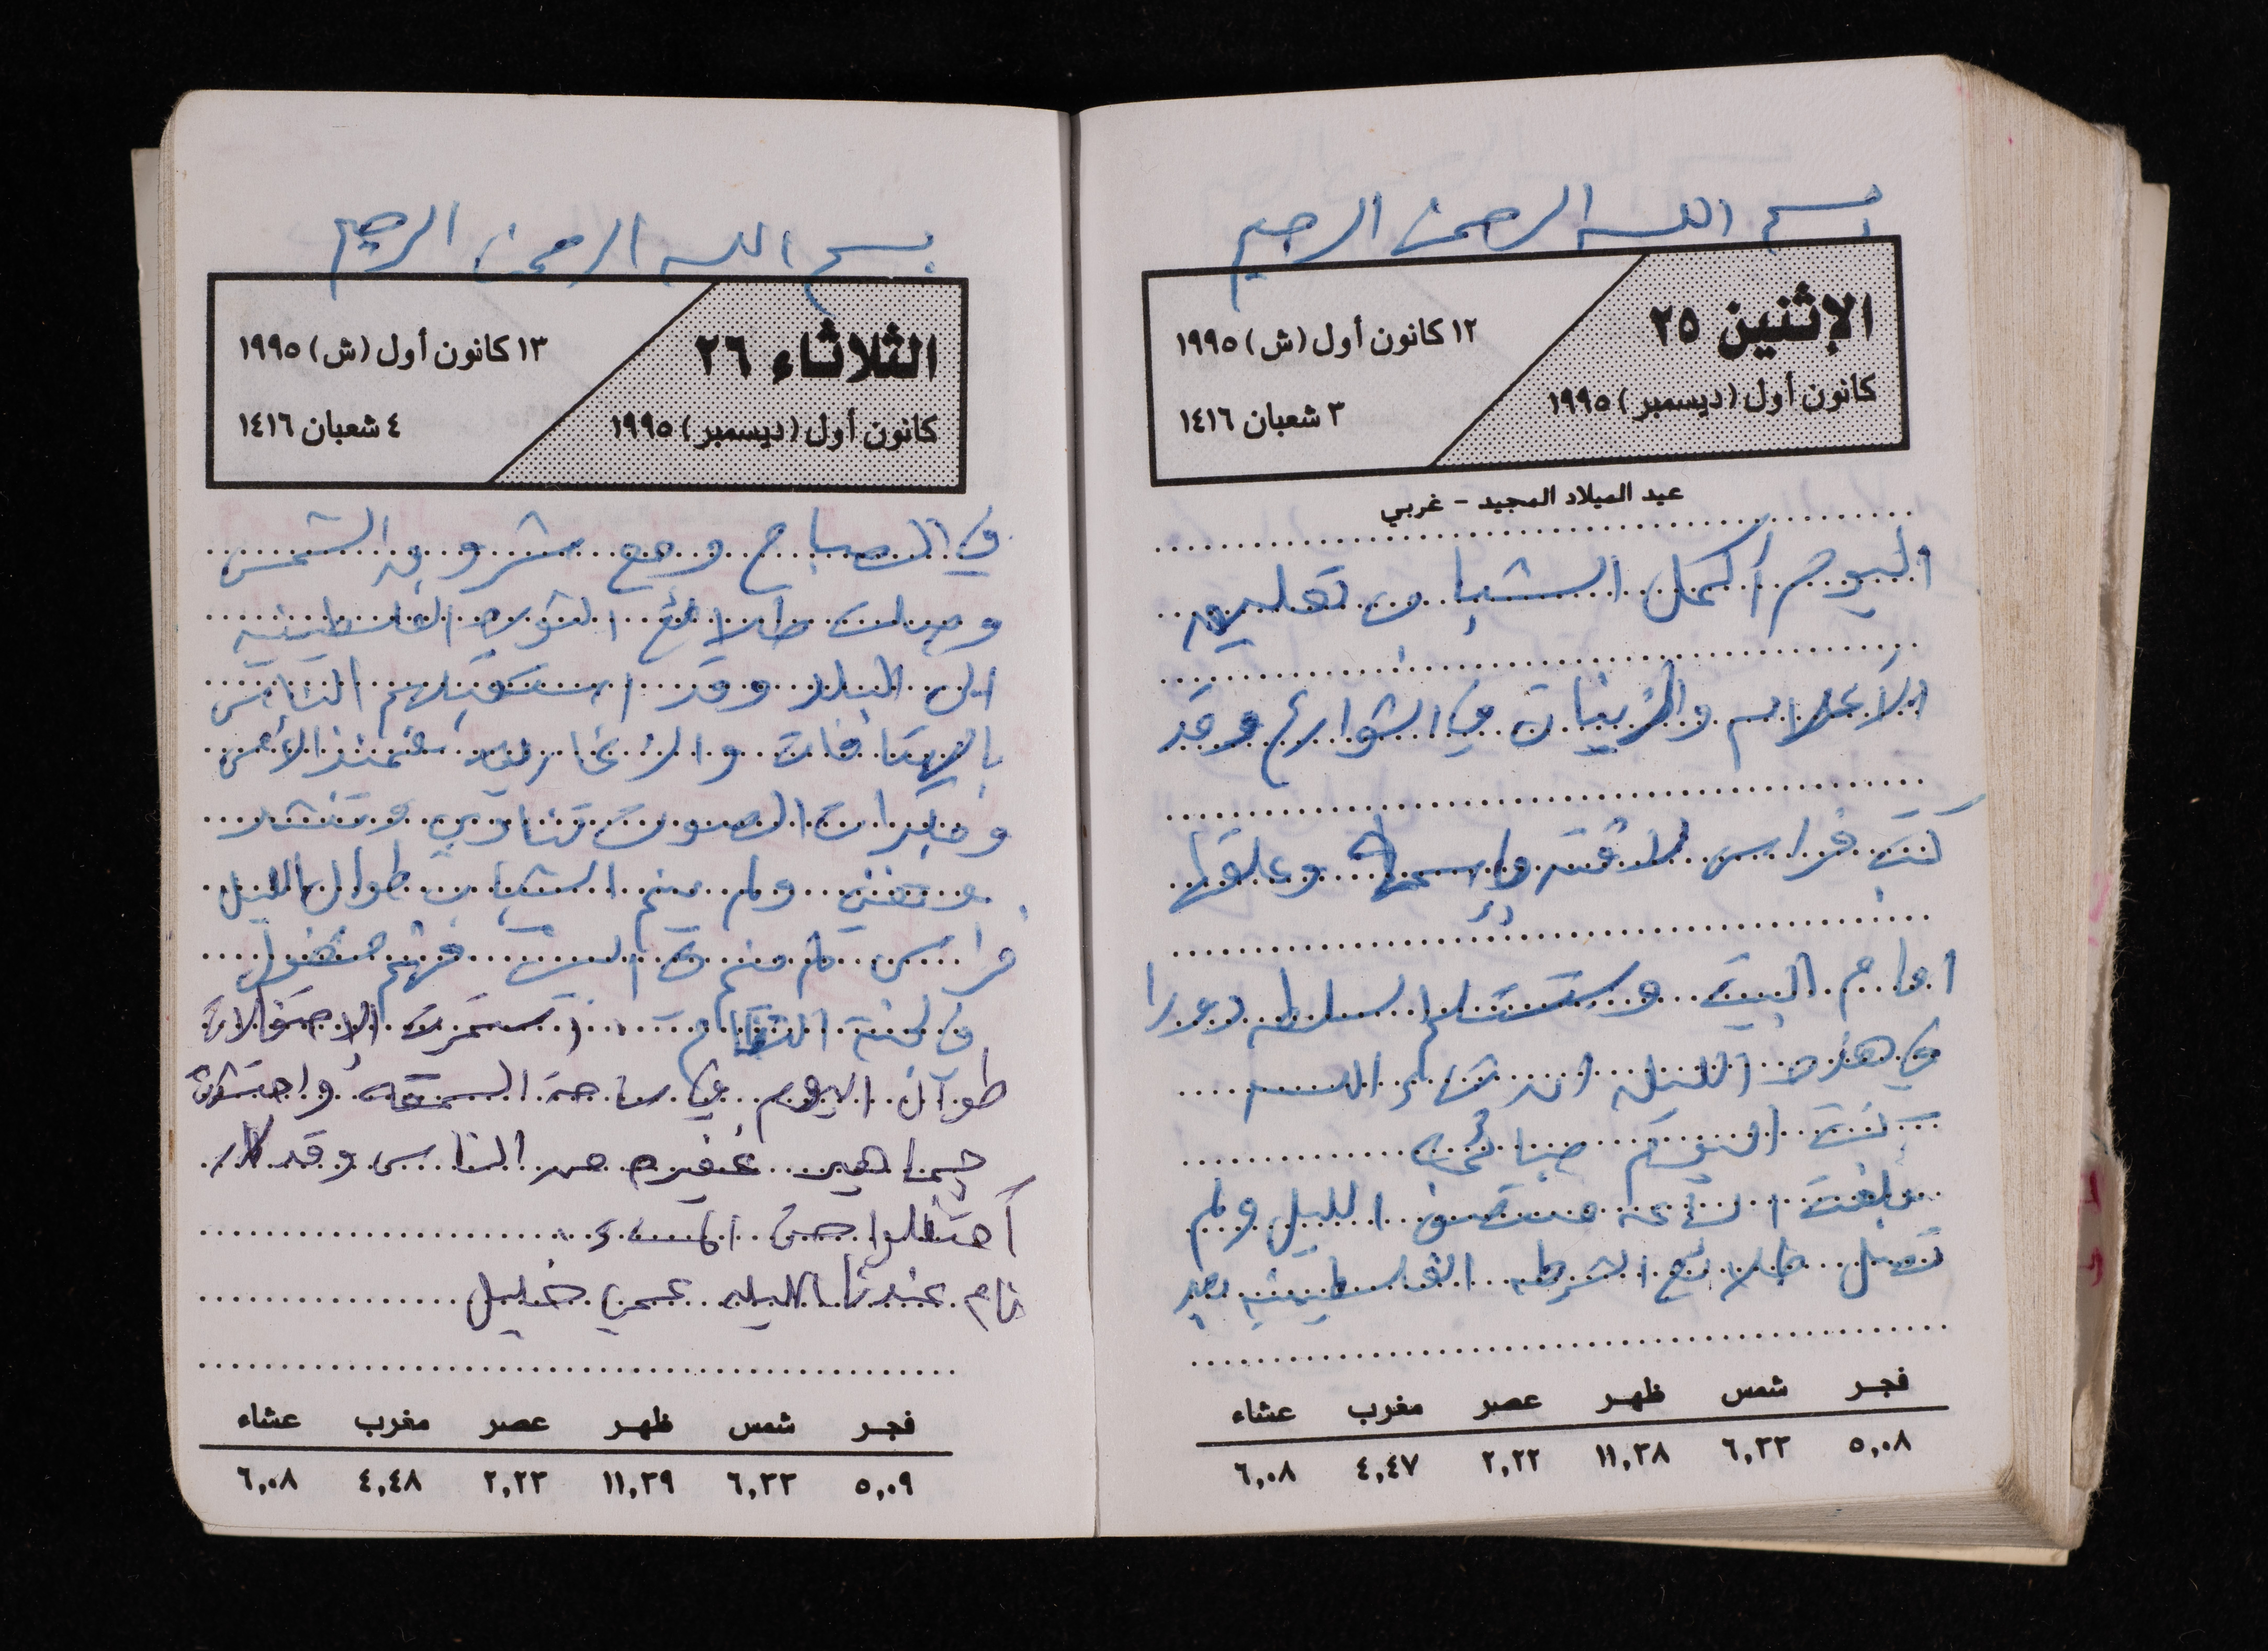 بسم الله الرحمن الرحيم
الإثنين ٢٥
كانون أول (ديسمبر) ١٩٩٥
١٢ كانون أول (ش) ١٩٩٥
٣ شعبان ١٤١٦
عيد الميلاد المجيد - غربي
اليوم أكمل الشباب تعليق
الأعلام والزينات في الشوارع وقد
كتب فراس لافته وعلقها
امام البيت وستستلم السلطه دورا
في هذه الليله ان شاء الله
كنت اليوم صائمه
بلغت الساعه منتصف الليل ولم
تصل طلائع الشرطه الفلسطينيه بعد
فجر شمس ظهر عصر مغرب عشاء
٥,٠٨ ٦,٣٣ ١١,٣٨ ٢,٢٢ ٤,٤٧ ٦,٠٨
بسم الله الرحمن الرحيم
الثلاثاء ٢٦
كانون أول (ديسمبر) ١٩٩٥
١٣ كانون أول (ش) ١٩٩٥
٤ شعبان ١٤١٦
في الصباح ومع شروق الشمس
وصلت طلائع الشرطه الفلسطينيه
الى البلد وقد استقبلهم الناس
بالهتافات والزغاريد فمنذ الأمس
ومكبرات الصوت تنادي وتنشد
وتغني ولم ينم الشباب طوال الليل
فراس لم ينم في البيت فهم مشغول
في لجنة النظام استمرت الإحتفالات
طوال اليوم في ساحة واحتشدت
جماهير غفيره من الناس وقد
أحتفلوا حتى المساء
نام عندنا الليله عمي خليل
فجر شمس ظهر عصر مغرب عشاء
٥,٠٩ ٦,٣٣ ١١,٣٩ ٢,٢٣ ٤,٤٨ ٦,٠٨